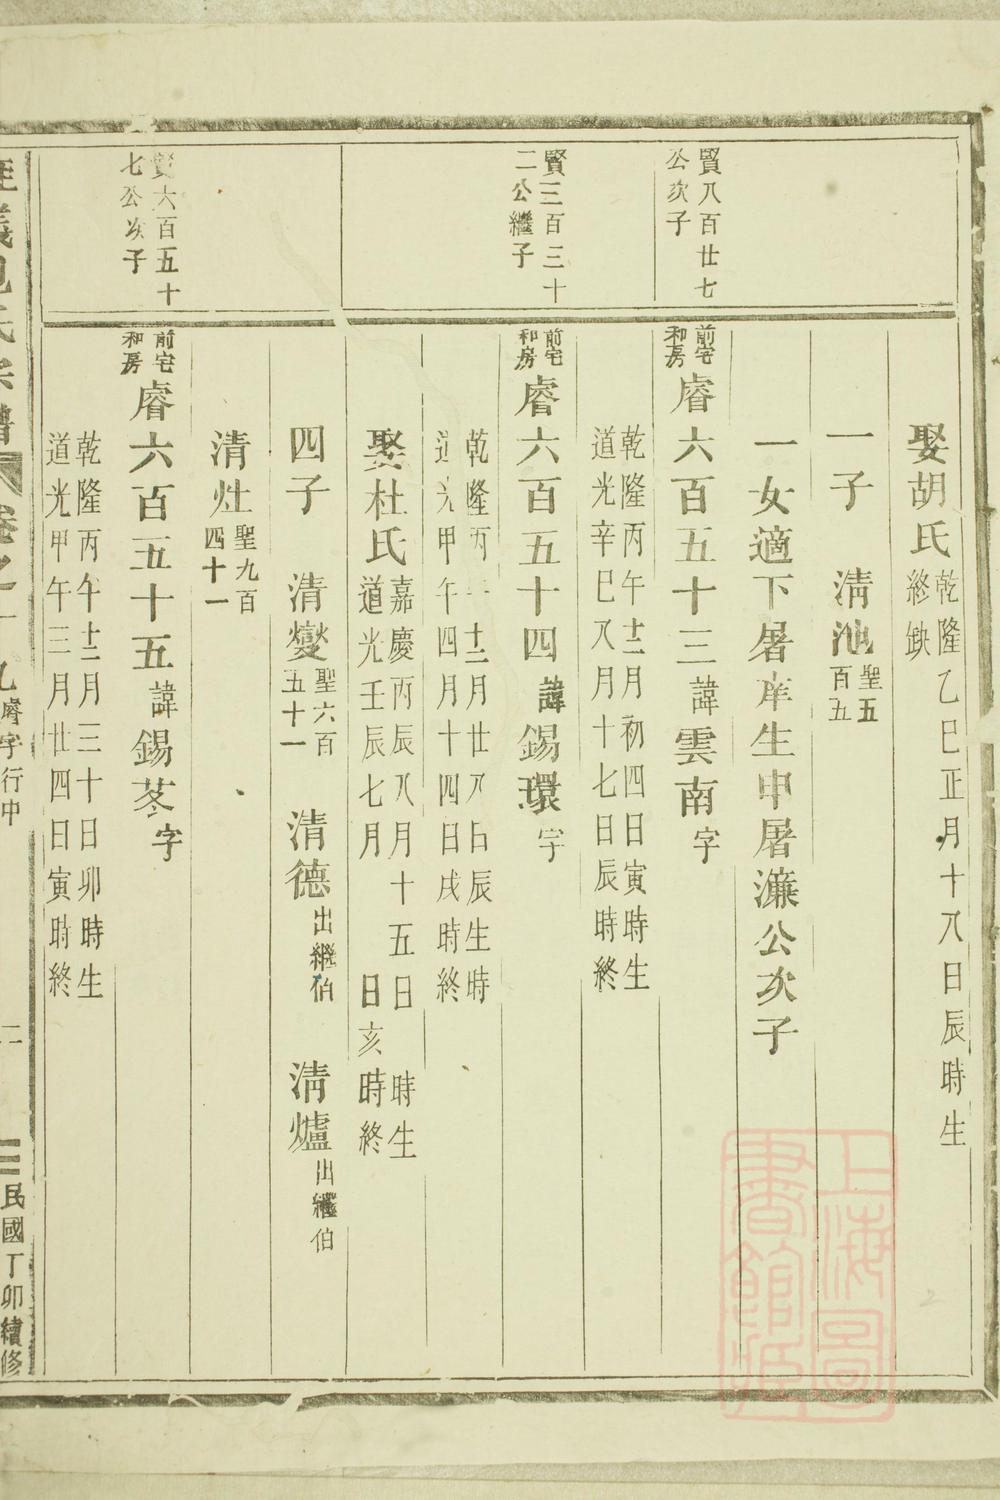 賢八百廿七
公次子
賢三百三十
二公繼子
賢六百五十
七公次子
娶胡氏
乾隆乙巳正月十八日辰時生
終缺
一子 淸池
聖五
百五
一女適下屠庠生申屠濂公次子
前宅
和房
睿六百五十三諱雲南字
乾隆丙午十二月初四日寅時生
道光辛巳八月十七日辰時終
前宅
和房
睿六百五十四諱錫環字
乾隆丙午十二月廿八日辰生時
道光甲午四月十四日戌時終
娶杜氏
嘉慶丙辰八月十五日 時生
道光壬辰七月 日亥時終
四子 淸燮
聖六百
五十一
淸德
出繼伯
淸爐
出繼伯
淸灶
聖九百
四十一
前宅
和房
睿六百五十五諱錫苳字
乾隆丙午十二月三十日卯時生
道光甲午三月廿四日寅時終
義 氏宗譜 卷之十九
睿字行中
二
民國丁卯續修
上海圖書館藏